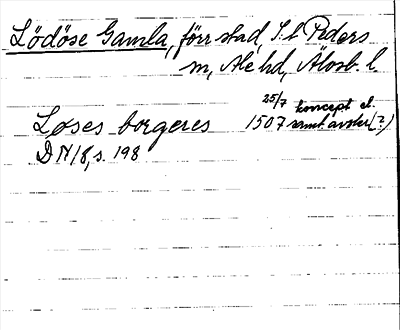 Lödöse Gamla, förr stad, S:t Peders
sn, Ale hd, Älvsb. l.
25/7 koncept el.
Løses borgeres 1507 samt. avskr. (?)
DN 18, s. 198